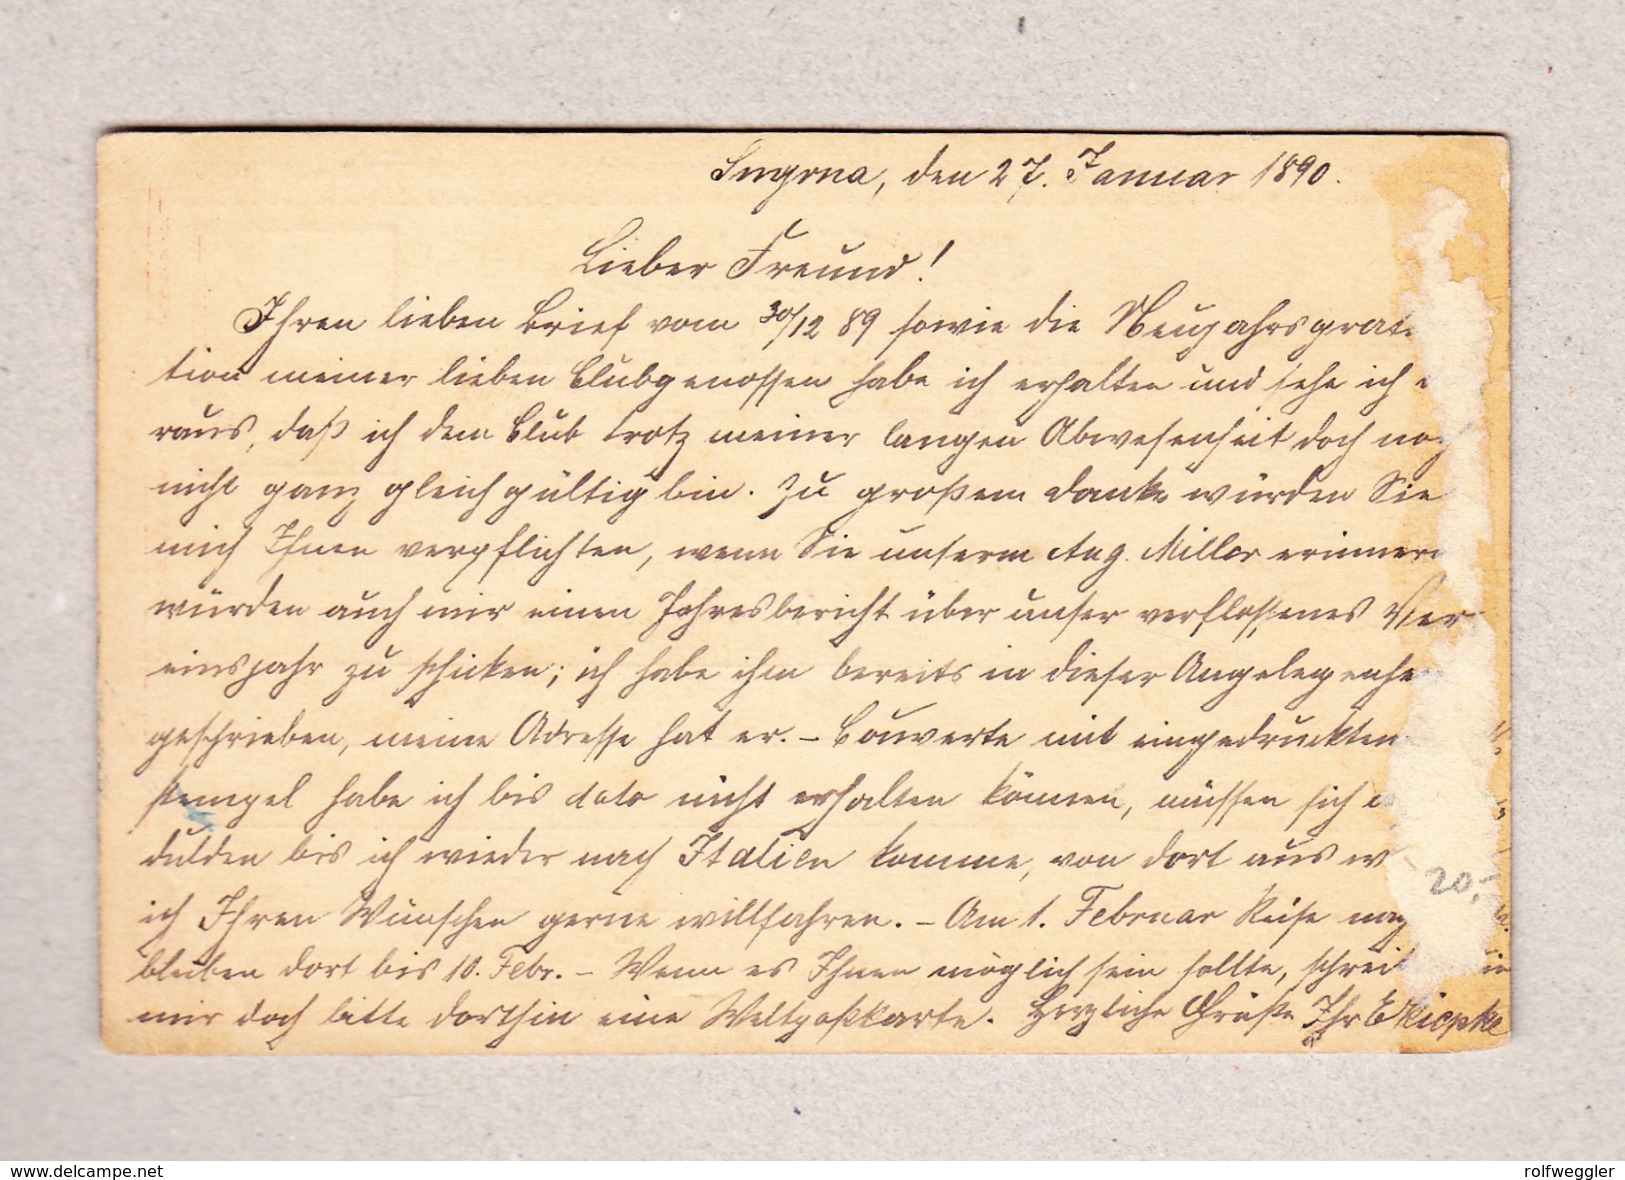 Smyrna, den 27. Januar 1890.
Lieber Freund!
Ihren lieben Brief vom 30/12 89 sowie die Neujahrsgrat
tion meiner lieben Clubgenossen habe ich erhalten und sehe ich
raus, daß ich dem Club trotz meiner langen Abwesenheit doch noch
nicht ganz gleichgültig bin. Zu großem Danke würden Sie
mich Ihnen verpflichten, wenn Sie unserm Aug. Miller erinnern
würden auch mir einen Jahresbericht über unser verflossenes Ver
einsjahr zu schicken; ich habe ihm bereits in dieser Angelegenhe
geschrieben, meine Adresse hat er. – Couverte mit eingedruckten
stempel habe ich bis dato nicht erhalten können, müssen sich
dulden bis ich wieder nach Italien komme, von dort aus w
ich Ihren Wünschen gerne willfahren. – Am 1. Februar Reise nach
bleiben dort bis 10. Febr. – Wenn es Ihnen möglich sein sollte, schreib
mir doch bitte dorthin eine Weltpostkarte. Herzliche Grüße Ihr
20,-
www.delcampe.net
rolfweggler